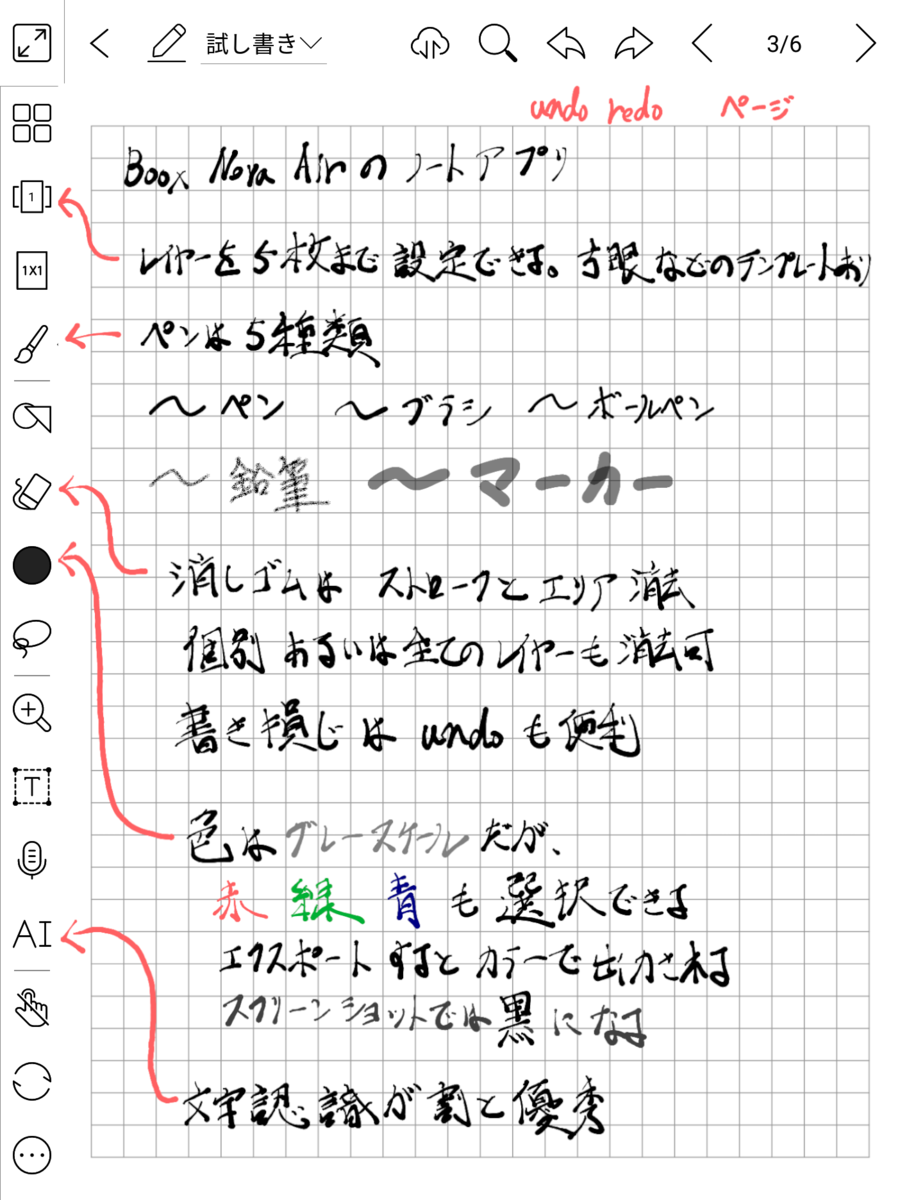 試し書き
3/6
undo redo ページ
Boox Nova Air の ノートアプリ
1
レイヤーを5枚まで設定できる。方眼などのテンプレートあり
1X1
ペンは5種類
〜ペン 〜ブラシ 〜ボールペン
〜鉛筆 〜マーカー
消しゴムは ストロークとエリア消去
個別あるいは全てのレイヤーも消去可
書き損じは undo も便利
T
色はグレースケールだが、
赤 緑 青 も選択できる
AI
エクスポートするとカラーで出力される
スクリーンショットでは黒になる
文字認識が割と優秀